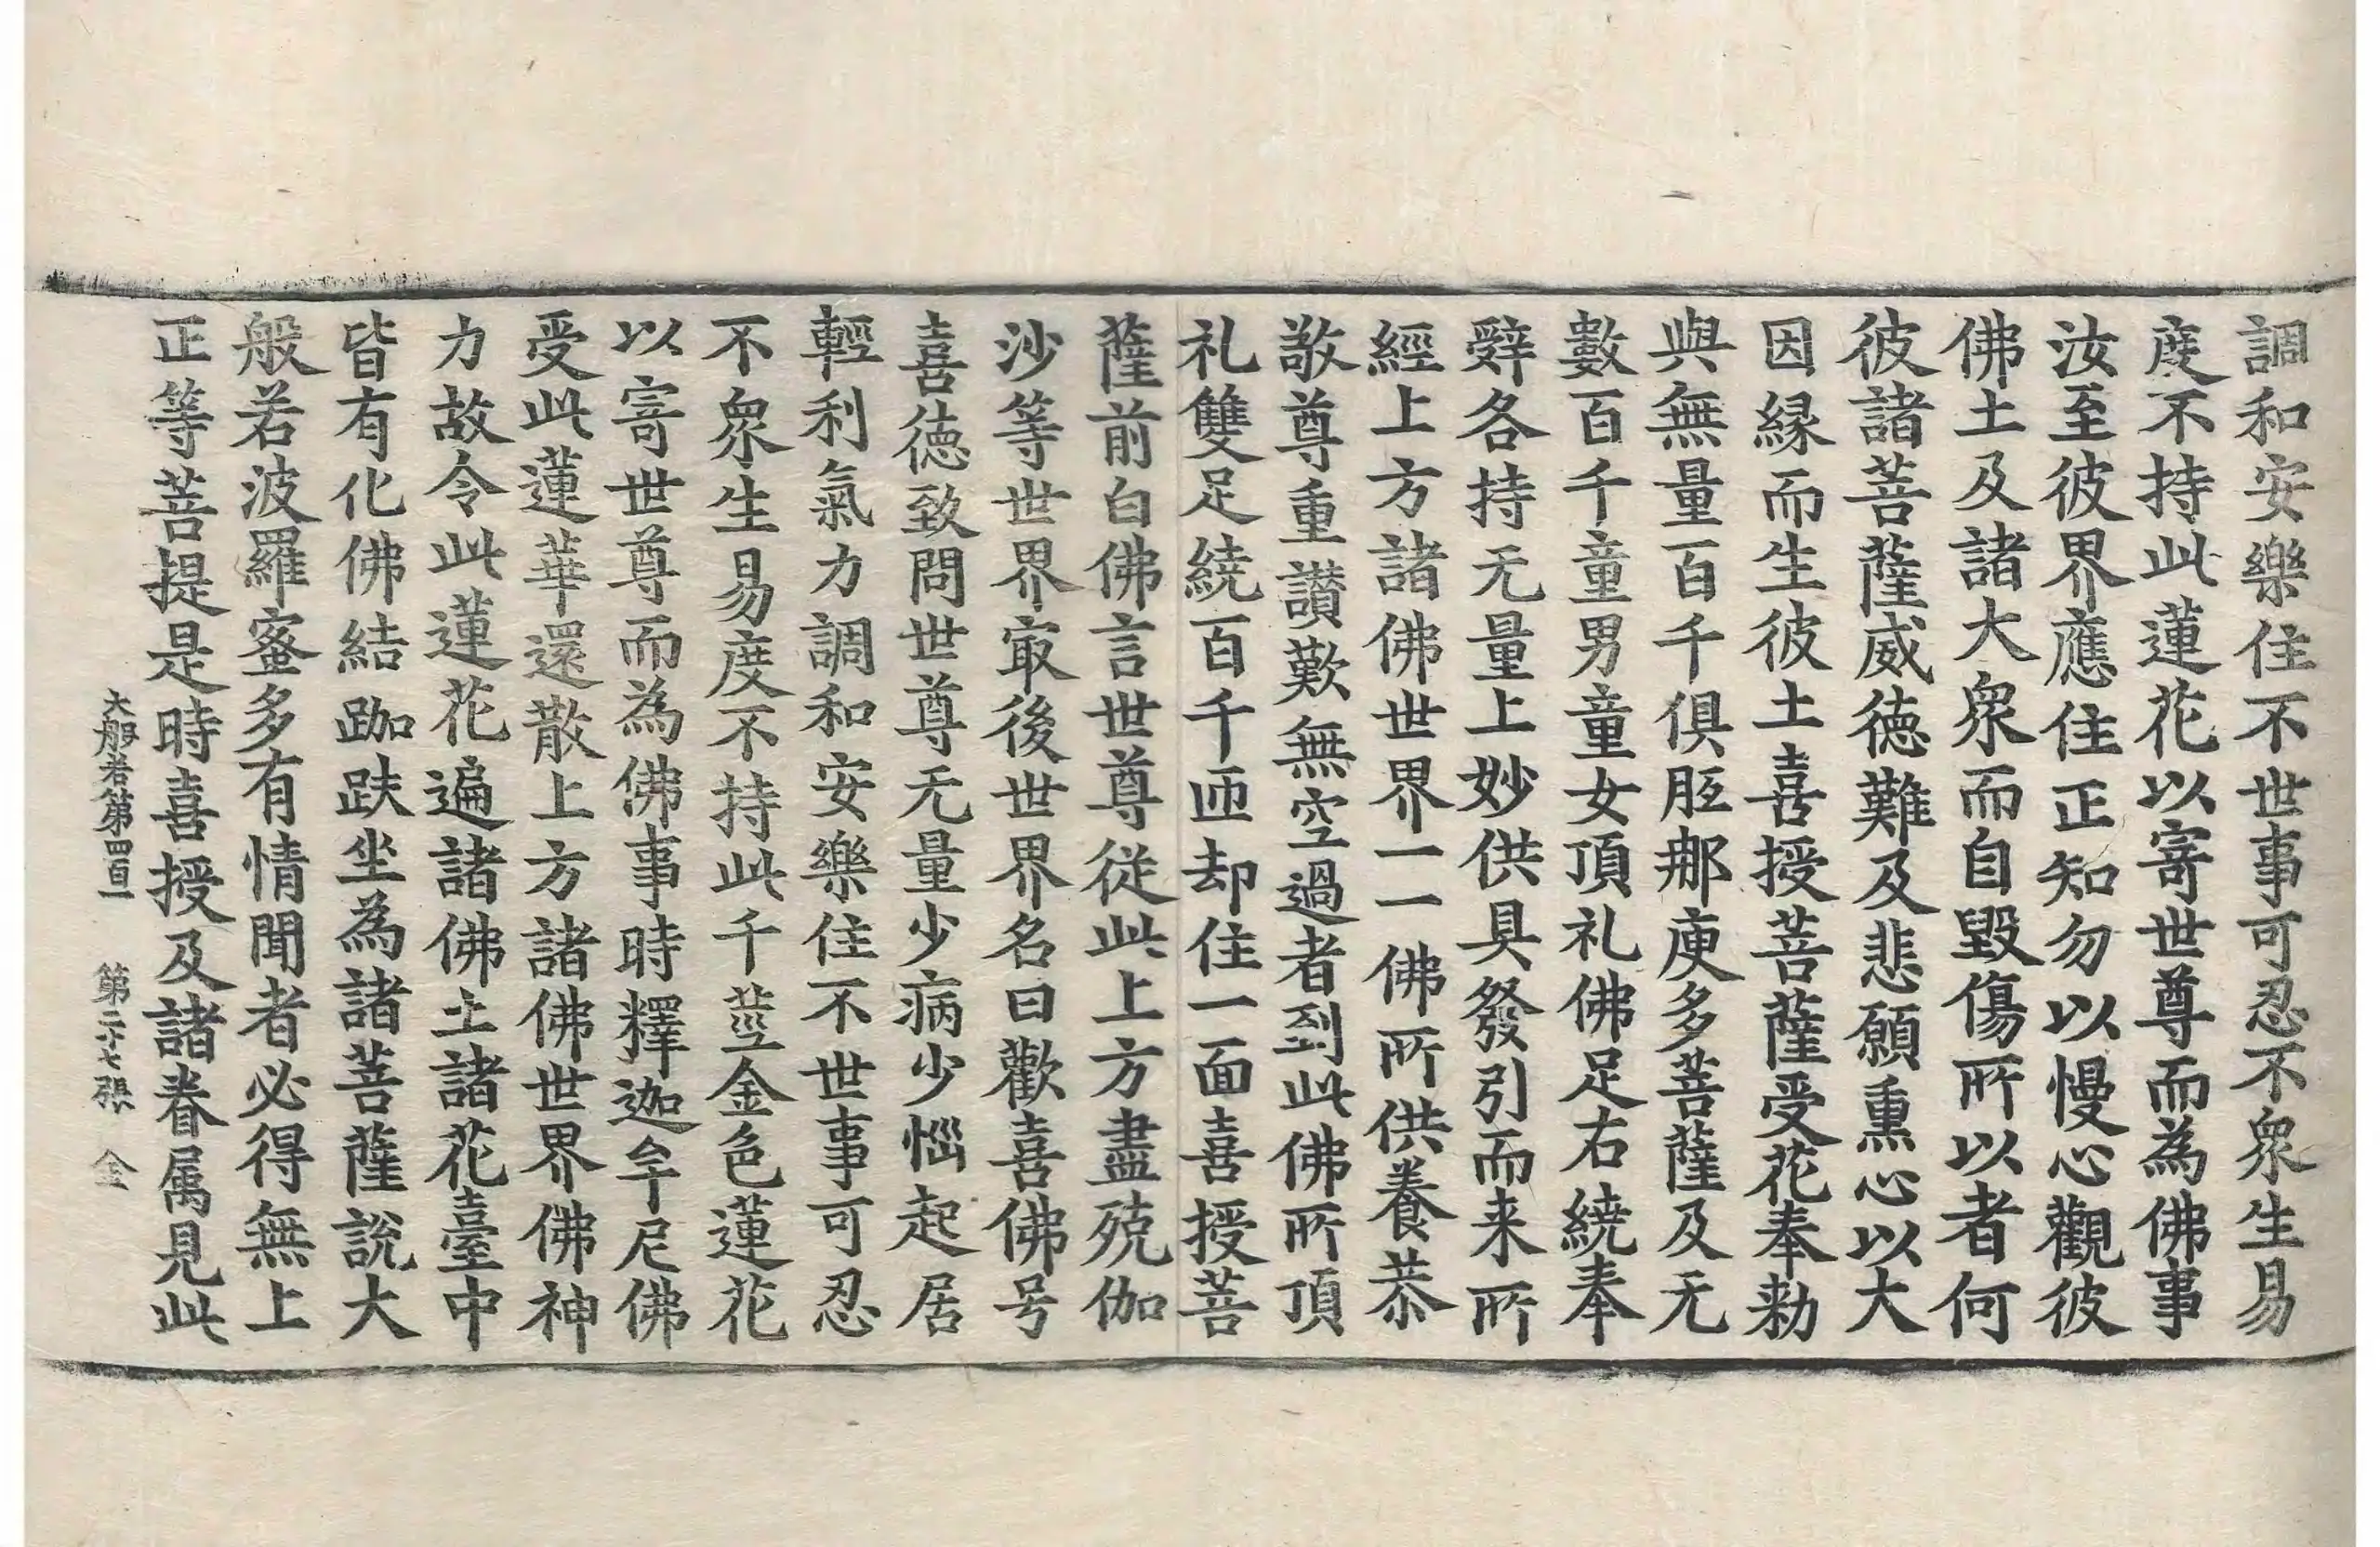 調和安樂住不世事可忍不衆生易
度不持此蓮花以寄世尊而為佛事
汝至彼界應住正知勿以慢心觀彼
佛土及諸大衆而自毀傷所以者何
彼諸菩薩威德難及悲願熏心以大
因縁而生彼土喜授菩薩受花奉勑
與無量百千俱胝那庾多菩薩及无
數百千童男童女頂礼佛足右繞奉
辤各持无量上妙供具發引而来所
經上方諸佛世界一一佛所供養恭
敬尊重讚歎無空過者到此佛所頂
礼雙足繞百千匝却住一面喜授菩
薩前白佛言世尊從此上方盡殑伽
沙等世界寂後世界名曰歡喜佛号
喜德致問世尊无量少病少惱起居
輕利氣力調和安樂住不世事可忍
不衆生易度不持此千莖金色蓮花
以寄世尊而為佛事時釋迦牟尼佛
受此蓮華還散上方諸佛世界佛神
力故令此蓮花遍諸佛土諸花臺中
皆有化佛結跏趺坐為諸菩薩說大
般若波羅蜜多有情聞者必得無上
正等菩提是時喜授及諸眷属見此
大般若第四百一　第二十七張　金